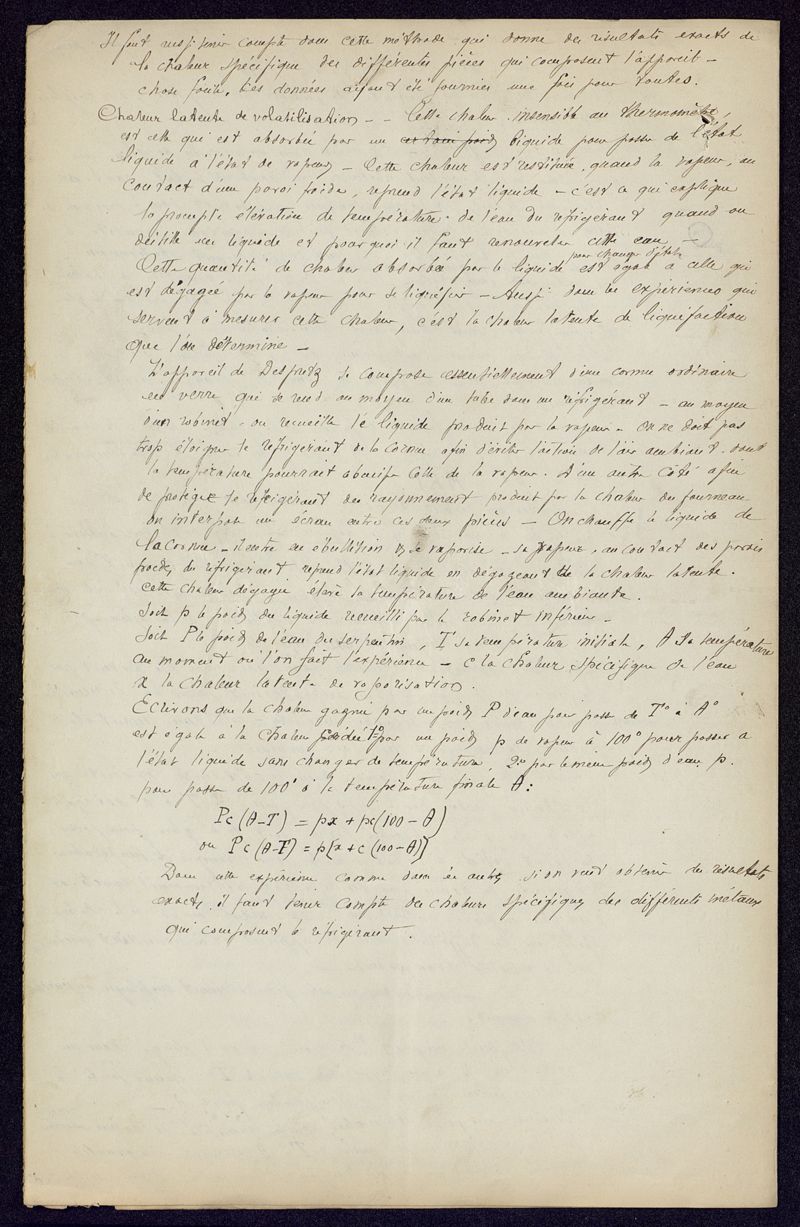 Il faut aussi tenir compte dans cette méthode qui donne des résultats exacts de
la chaleur spécifique des différentes pièces qui composent l'appareil -
chose faite, les données ayant été fournies une fois pour toutes.
Chaleur latente de volatilisation - - Cette chaleur insensible au thermomètre,
est celle qui est absorbée par un certain poids liquide pour passer de l'état
liquide à l'état de vapeurs - Cette chaleur est restituée, quand la vapeur, au
contact d'une paroi froide, reprend l'état liquide - c'est ce qui explique
la prompte élévation de température de l'eau du réfrigérant quand on
distille un liquide et pourquoi il faut renouveler cette eau -
pour changer d'état
Cette quantité de chaleur absorbée par le liquide est égale à celle qui
est dégagée par la vapeur pour se liquéfier - Aussi dans les expériences qui
servent à mesurer cette chaleur, c'est la chaleur latente de liquéfaction
que l'on détermine -
L'appareil de Despretz se compose essentiellement d'une cornue ordinaire
en verre qui se rend au moyen d'un tube dans un réfrigérant - au moyen
d'un robinet, on recueille le liquide produit par la vapeur - On ne doit pas
trop éloigner le réfrigérant de la cornue afin d'éviter l'action de l'air ambiant, dont
la température pourrait abaisser celle de la vapeur. D'un autre côté afin
de protéger le réfrigérant du rayonnement produit par la chaleur du fourneau
on interpose un écran entre ces deux pièces - On chauffe le liquide de
la cornue - il entre en ébullition et se vaporise - sa vapeur, au contact des parois
froides du réfrigérant reprend l'état liquide en dégageant de la chaleur latente.
cette chaleur dégagée élève la température de l'eau ambiante.
Soit p le poids du liquide recueilli par le robinet inférieur -
Soit P le poids de l'eau du serpentin, T sa température initiale, θ sa température
au moment où l'on fait l'expérience - c la chaleur spécifique de l'eau
x la chaleur latente de vaporisation.
Ecrivons que la chaleur gagnée par un poids P d'eau pour passer de T° à θ°
est égale à la chaleur perdue 1° par un poids p de vapeur à 100° pour passer à
l'état liquide sans changer de température, 2° par le même poids d'eau p.
pour passer de 100° à la température finale θ :
Pc (θ-T) = px + pc(100-θ)
ou Pc (θ-T) = p[x + c (100-θ)]
Dans cette expérience comme dans les autres si on veut obtenir des résultats
exacts, il faut tenir compte des chaleurs spécifiques des différents métaux
qui composent le réfrigérant.